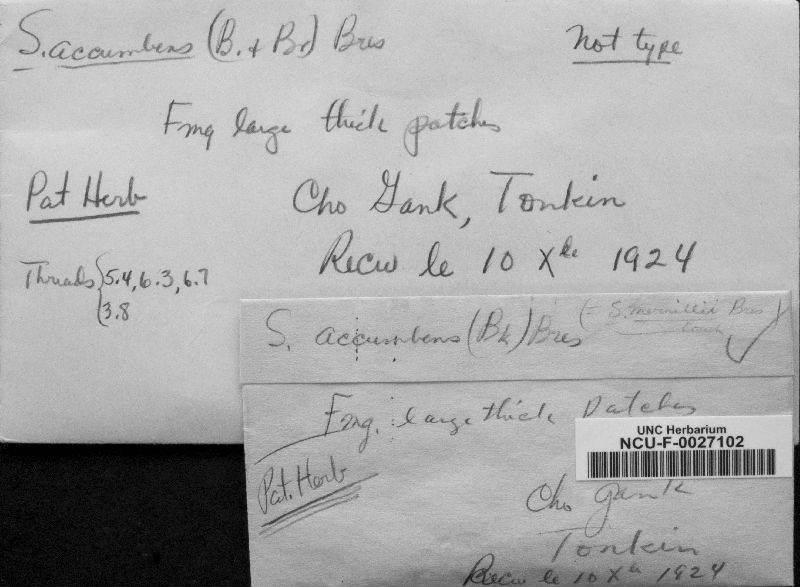 S. accumbens (B. & Br) Bres
Not type
Fmg large thick patches
Pat Herb
Cho Gank, Tonkin
Recw le 10 Xbe 1924
Threads {5.4, 6.3, 6.7
3.8
S. accumbens (Bk) Bres (= S. merrillii Bres
Fmg. large thick patches
UNC Herbarium
NCU-F-0027102
Pat. Herb
Cho Gank
Tonkin
Recw le 10 Xbe 1924